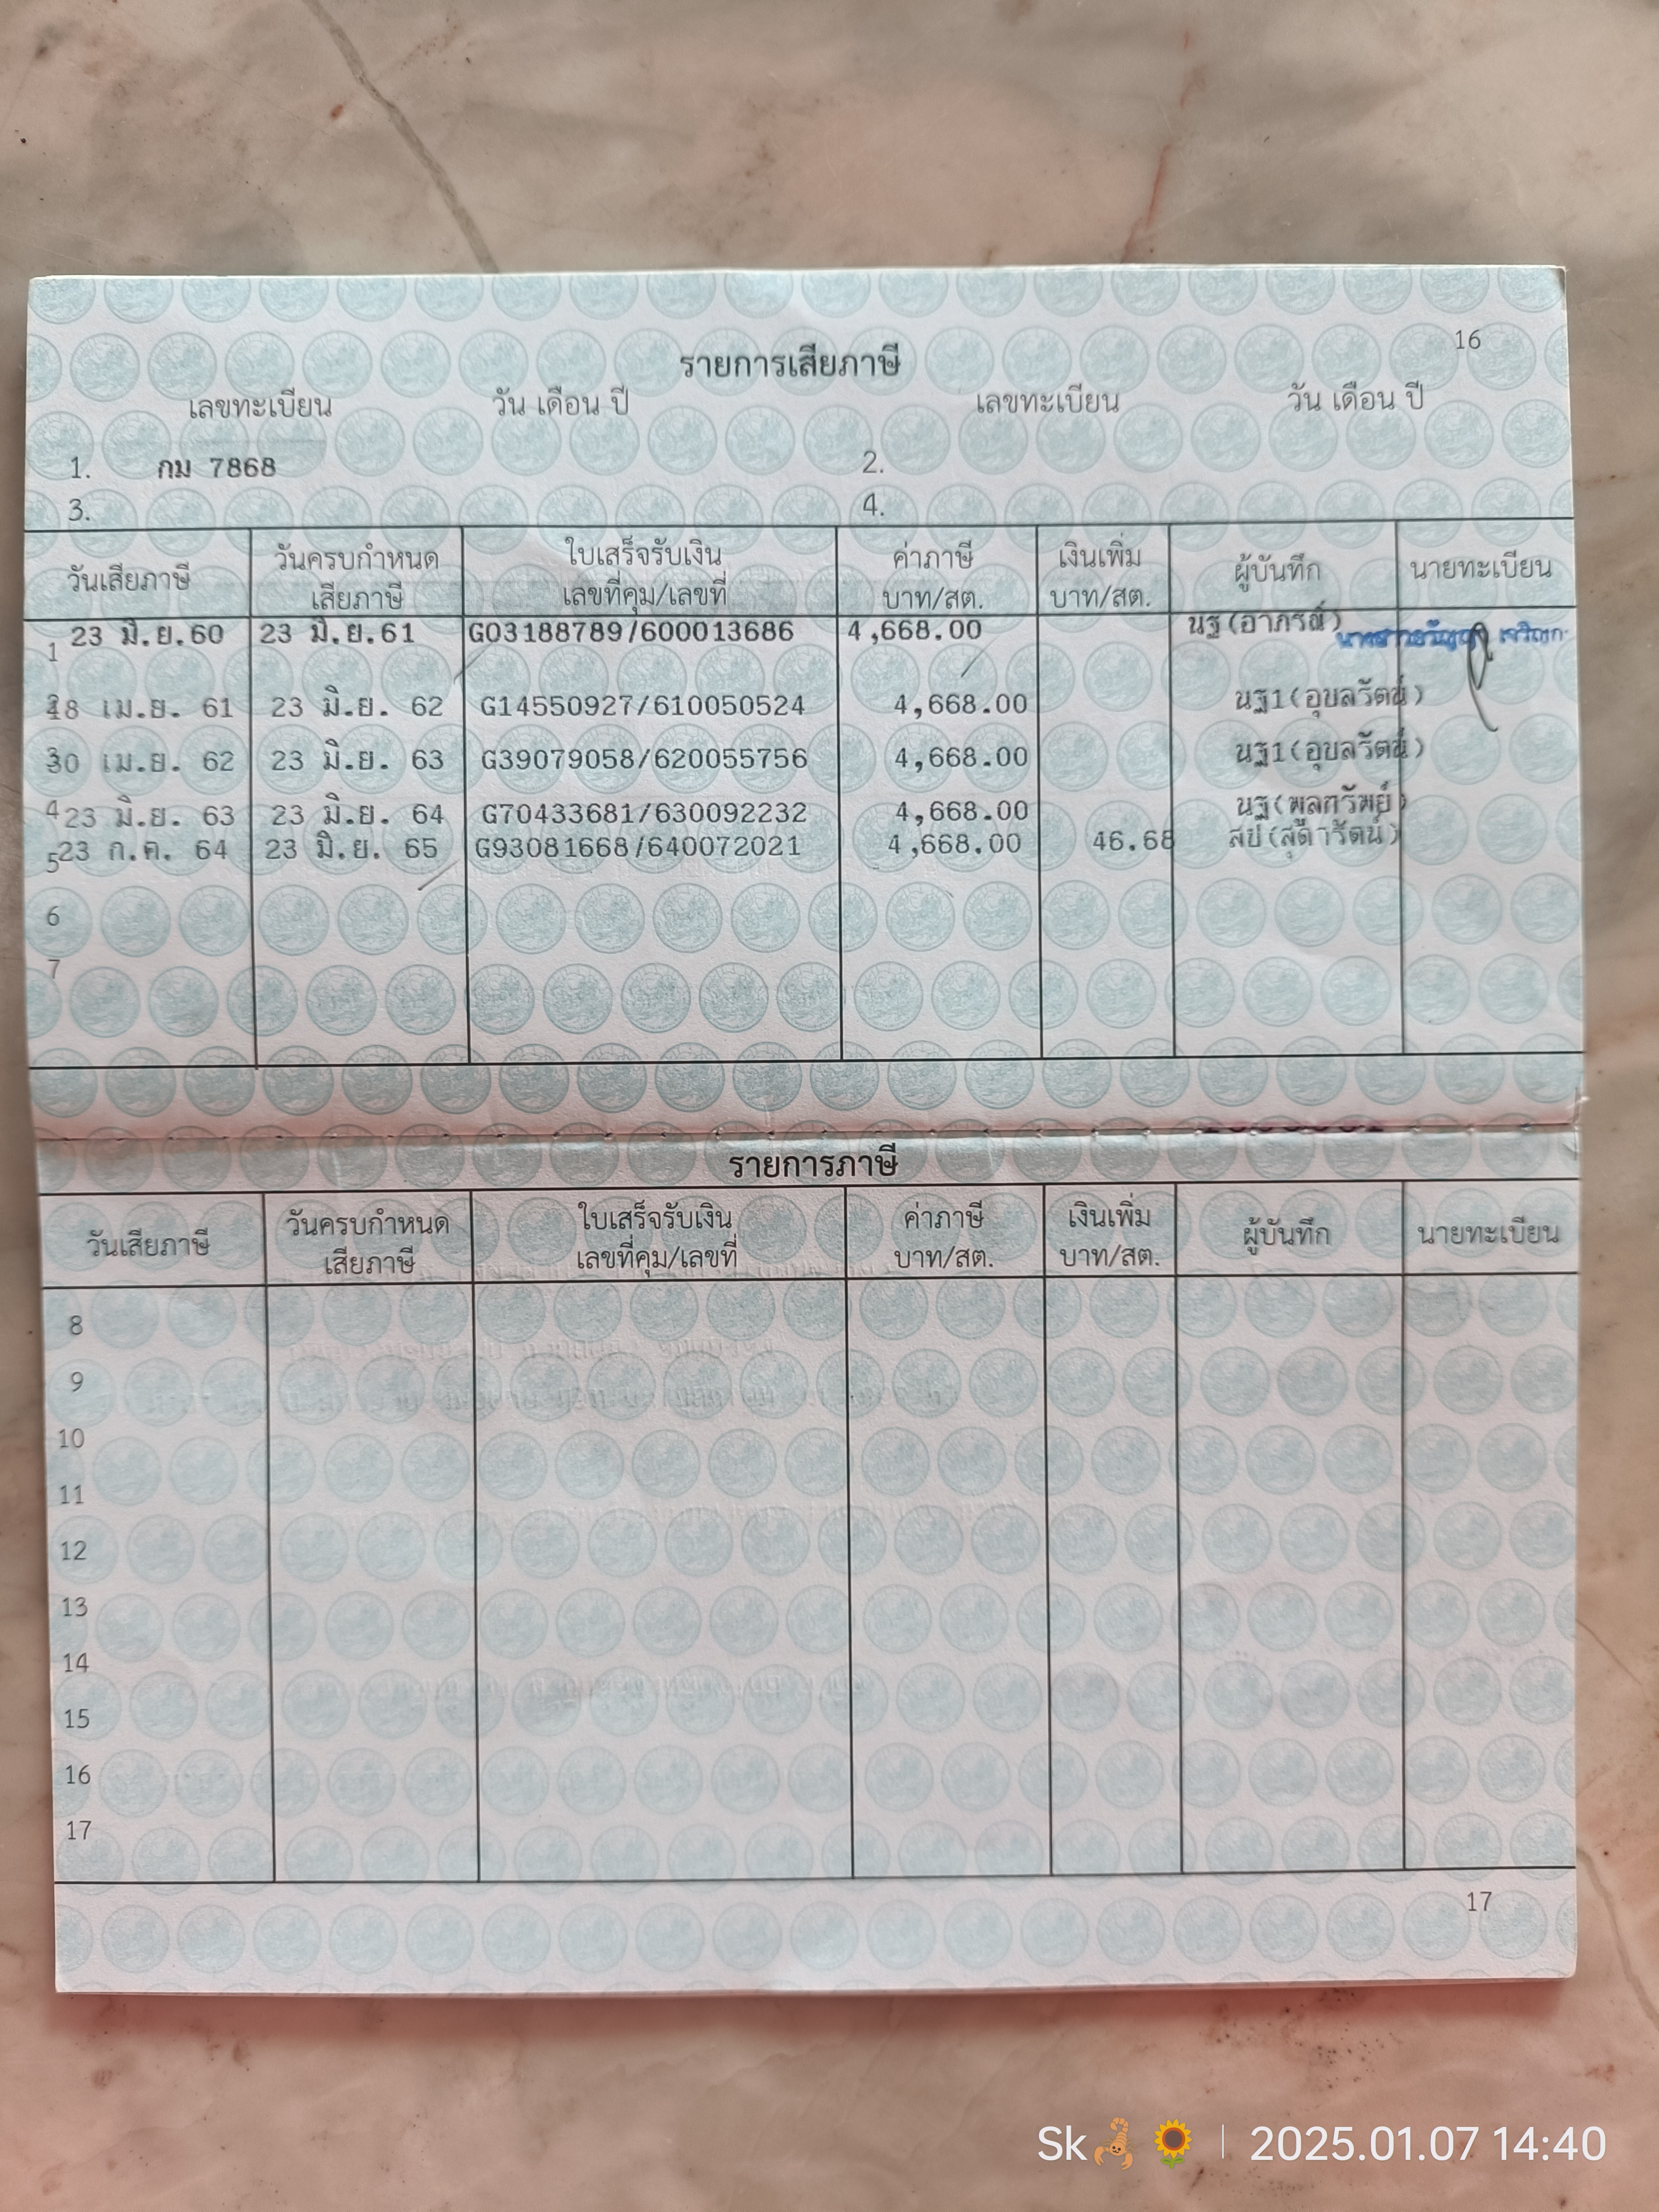 16
รายการเสียภาษี
เลขทะเบียน วัน เดือน ปี เลขทะเบียน วัน เดือน ปี
1. กม 7868 2.
3. 4.
วันเสียภาษี วันครบกำหนด เสียภาษี ใบเสร็จรับเงิน เลขที่คุม/เลขที่ ค่าภาษี บาท/สต. เงินเพิ่ม บาท/สต. ผู้บันทึก นายทะเบียน
1 23 มิ.ย.60 23 มิ.ย.61 G03188789/600013686 4,668.00 นฐ(อาภรณ์)
18 เม.ย. 61 23 มิ.ย. 62 G14550927/610050524 4,668.00 นฐ1(อุบลรัตน์)
30 เม.ย. 62 23 มิ.ย. 63 G39079058/620055756 4,668.00 นฐ1(อุบลรัตน์)
4 23 มิ.ย. 63 23 มิ.ย. 64 G70433681/630092232 4,668.00 นฐ(พูลทรัพย์)
5 23 ก.ค. 64 23 มิ.ย. 65 G93081668/640072021 4,668.00 46.68 สป(สุดารัตน์)
6
7
รายการภาษี
วันเสียภาษี วันครบกำหนด เสียภาษี ใบเสร็จรับเงิน เลขที่คุม/เลขที่ ค่าภาษี บาท/สต. เงินเพิ่ม บาท/สต. ผู้บันทึก นายทะเบียน
8
9
10
11
12
13
14
15
16
17
17
Sk🦂🌻 | 2025.01.07 14:40